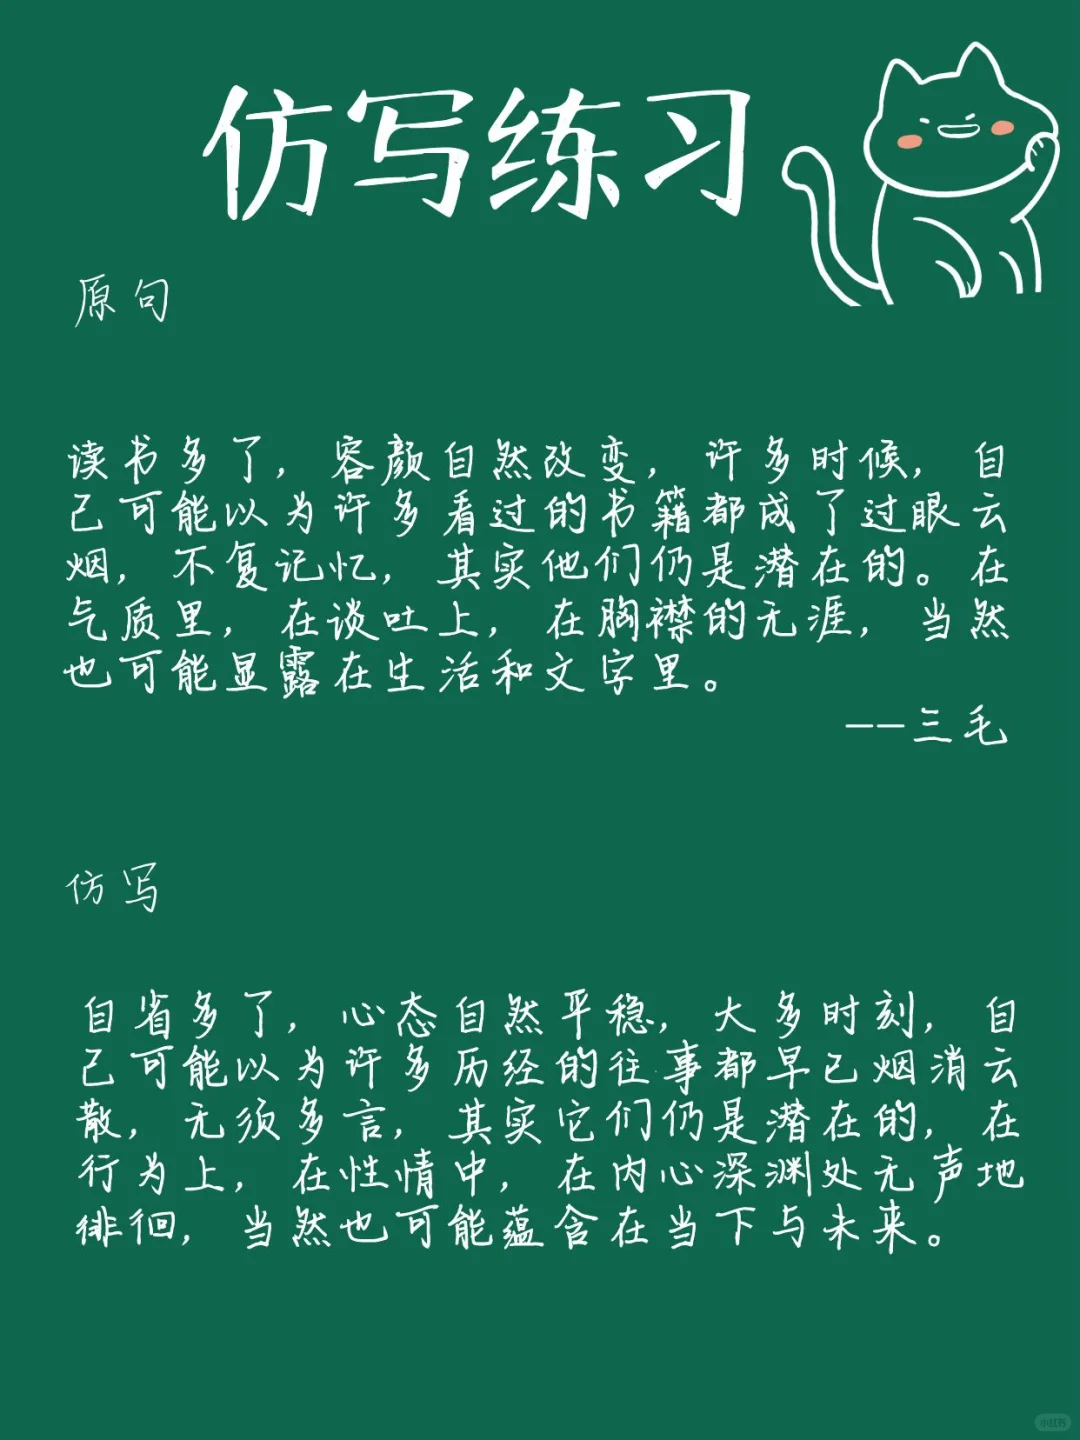 仿写练习
原句
读书多了，容颜自然改变，许多时候，自
己可能以为许多看过的书籍都成了过眼云
烟，不复记忆，其实他们仍是潜在的。在
气质里，在谈吐上，在胸襟的无涯，当然
也可能显露在生活和文字里。
——三毛
仿写
自省多了，心态自然平稳，大多时刻，自
己可能以为许多历经的往事都早已烟消云
散，无须多言，其实它们仍是潜在的，在
行为上，在性情中，在内心深渊处无声地
徘徊，当然也可能蕴含在当下与未来。
小红书